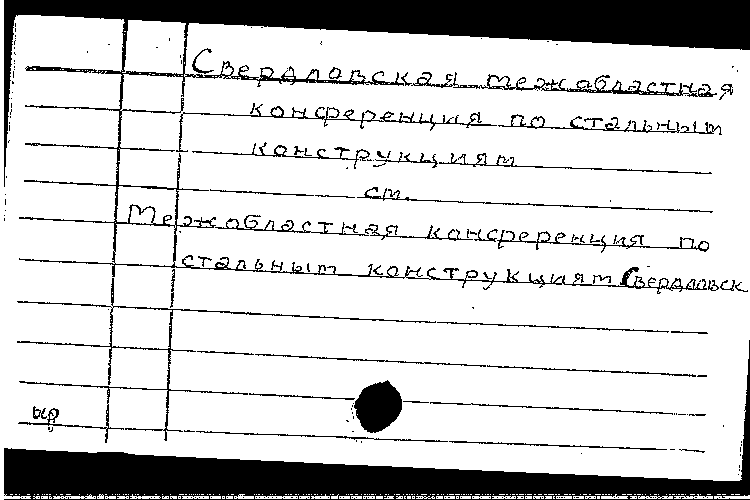 Свердловская межобластная
конференция по стальным
конструкциям
см.
Межобластная конференция по
стальным конструкциям Свердловск